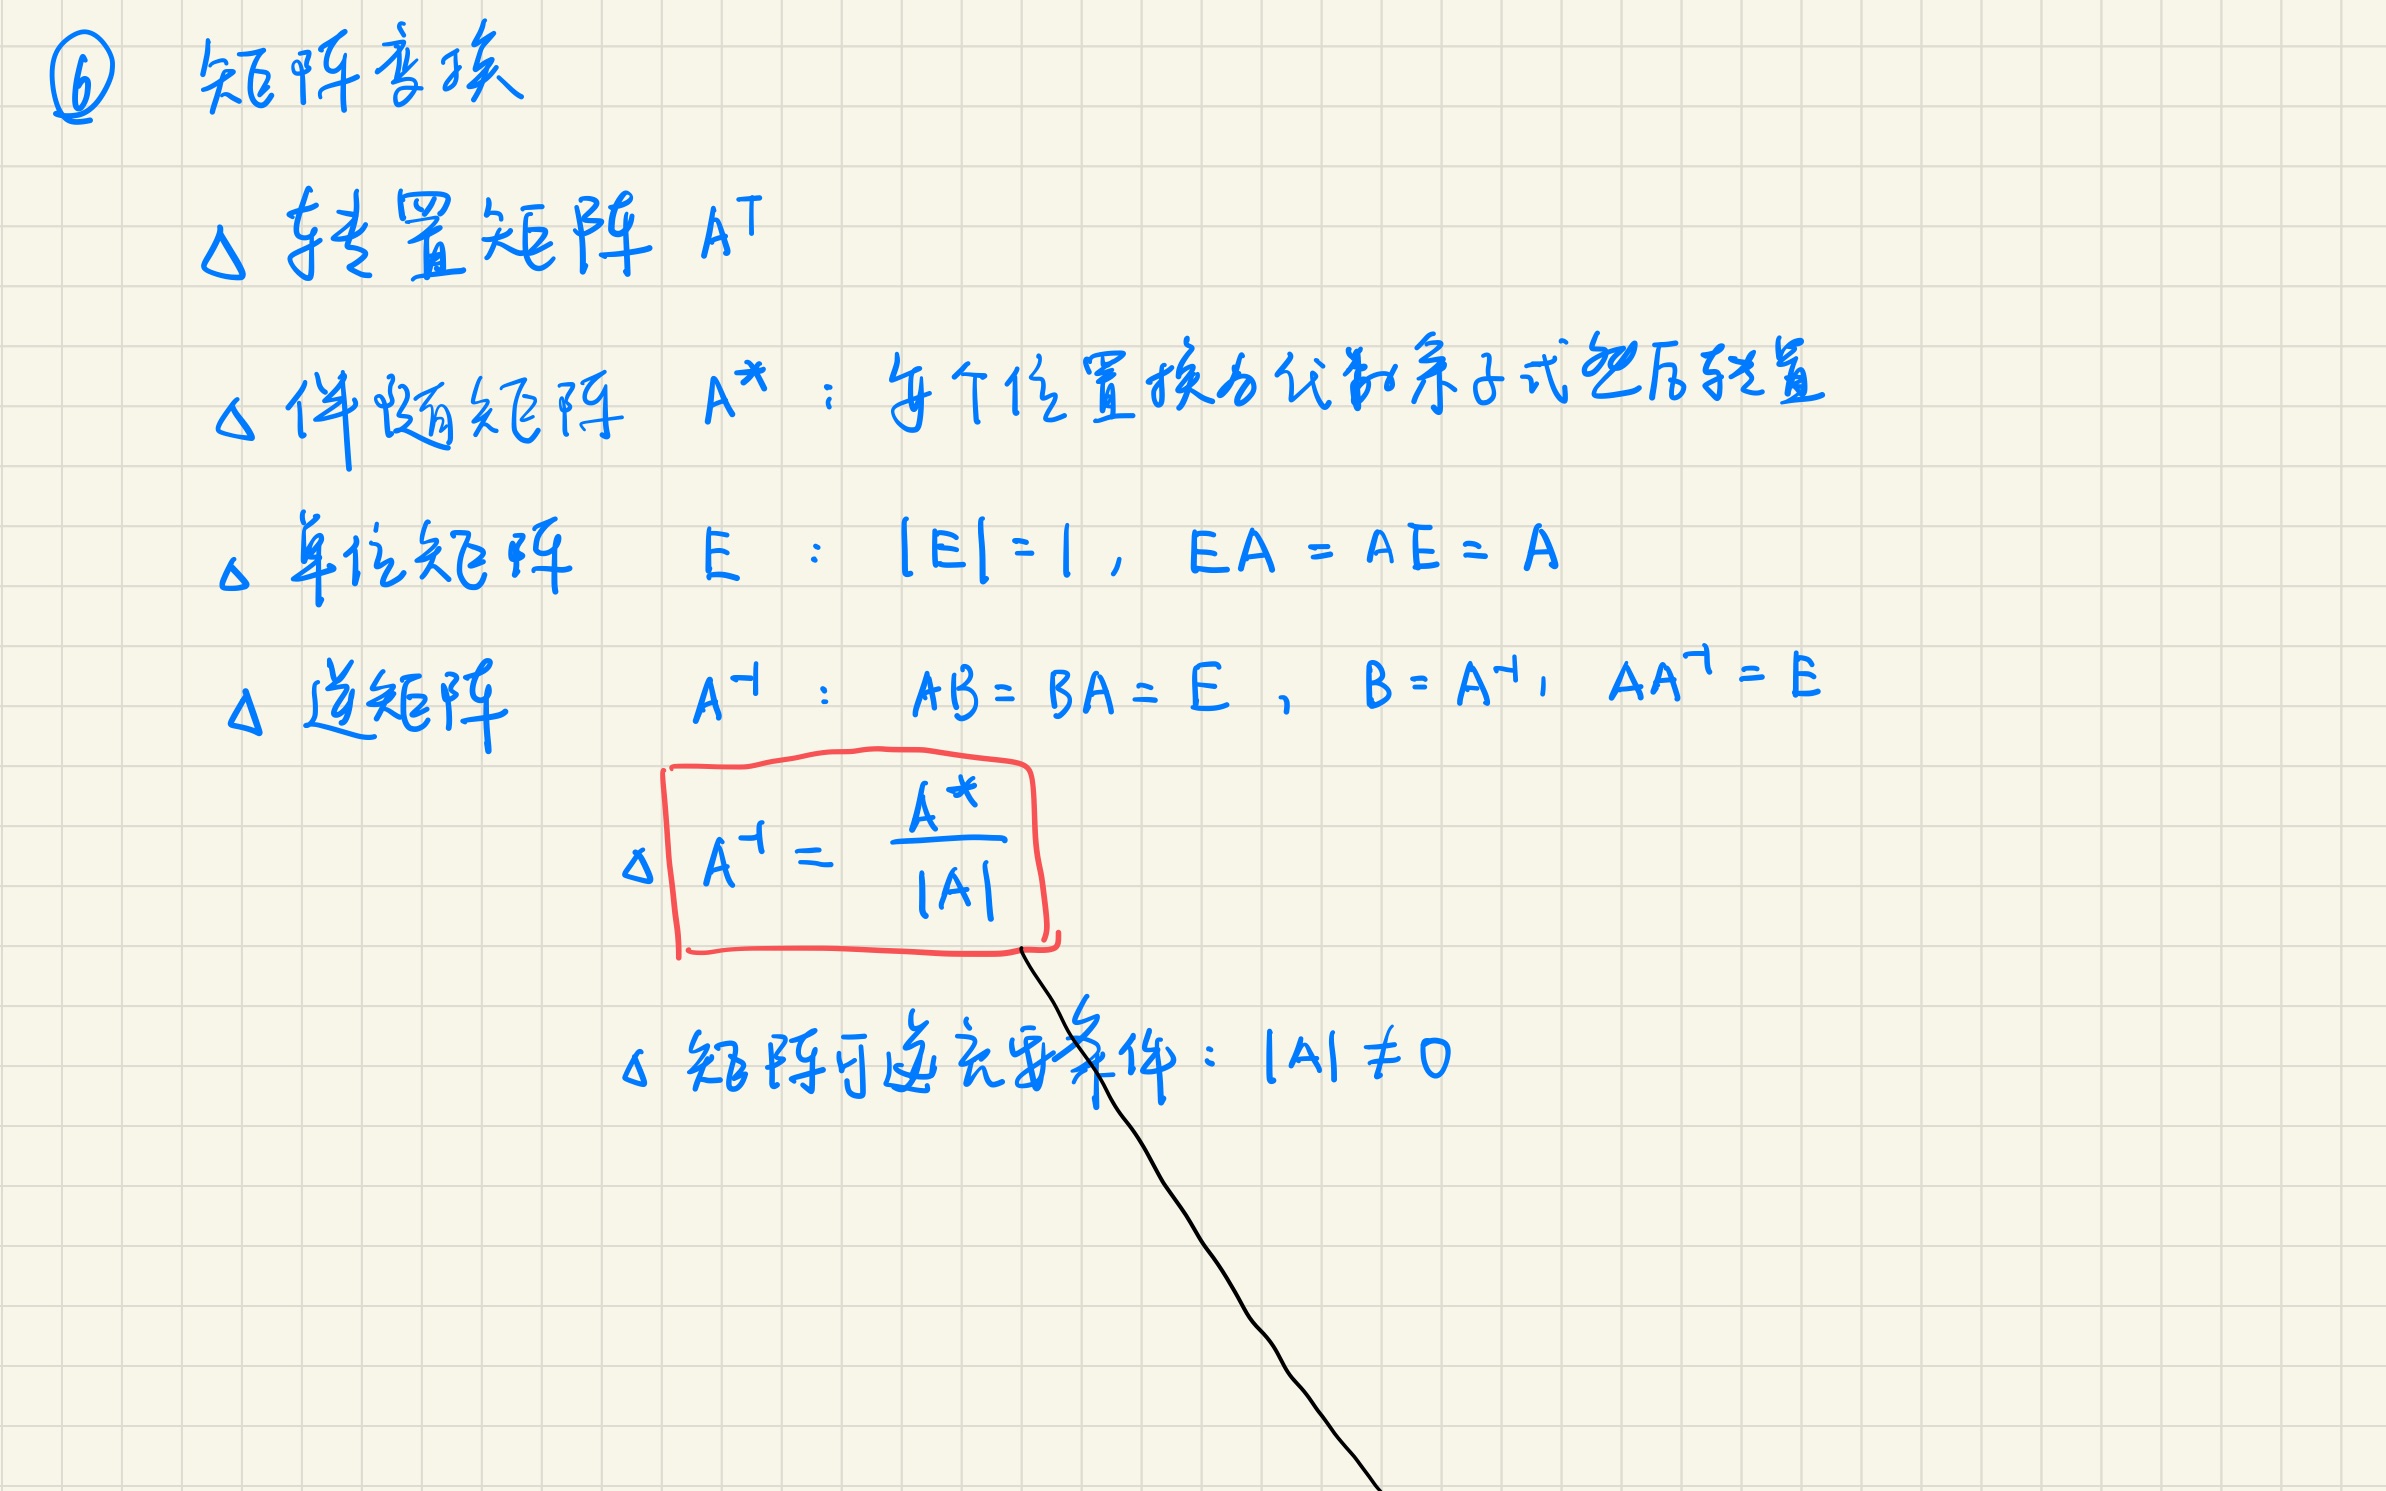 ⑥ 矩阵变换
△ 转置矩阵 A^T
△ 伴随矩阵 A^* : 每个位置换为代数余子式之后再转置
△ 单位矩阵 E : |E|=1, EA=AE=A
△ 逆矩阵 A^-1 : AB=BA=E, B=A^-1, AA^-1=E
△ A^-1 = A^*/|A|
△ 矩阵可逆充要条件: |A|≠0